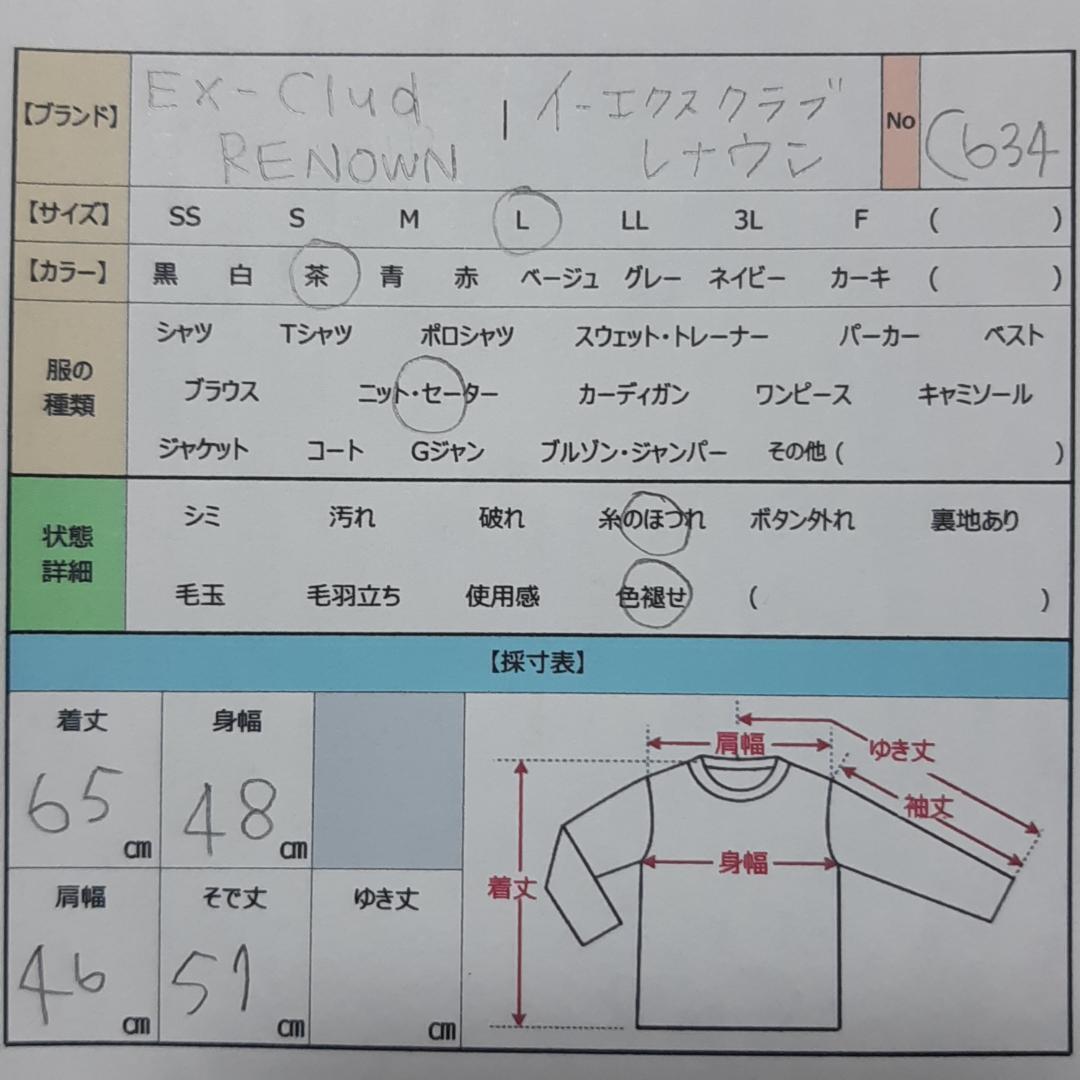 【ブランド】 Ex-Clud | イーエクスクラブ No C634
RENOWN レナウン
【サイズ】 SS S M L LL 3L F ( )
【カラー】 黒 白 茶 青 赤 ベージュ グレー ネイビー カーキ ( )
服の種類
シャツ Tシャツ ポロシャツ スウェット・トレーナー パーカー ベスト
ブラウス ニット・セーター カーディガン ワンピース キャミソール
ジャケット コート Gジャン ブルゾン・ジャンパー その他 ( )
状態詳細
シミ 汚れ 破れ 糸のほつれ ボタン外れ 裏地あり
毛玉 毛羽立ち 使用感 色褪せ ( )
【採寸表】
着丈 身幅
65 cm 48 cm
肩幅 そで丈 ゆき丈
46 cm 51 cm cm
肩幅 ゆき丈
袖丈
身幅
着丈